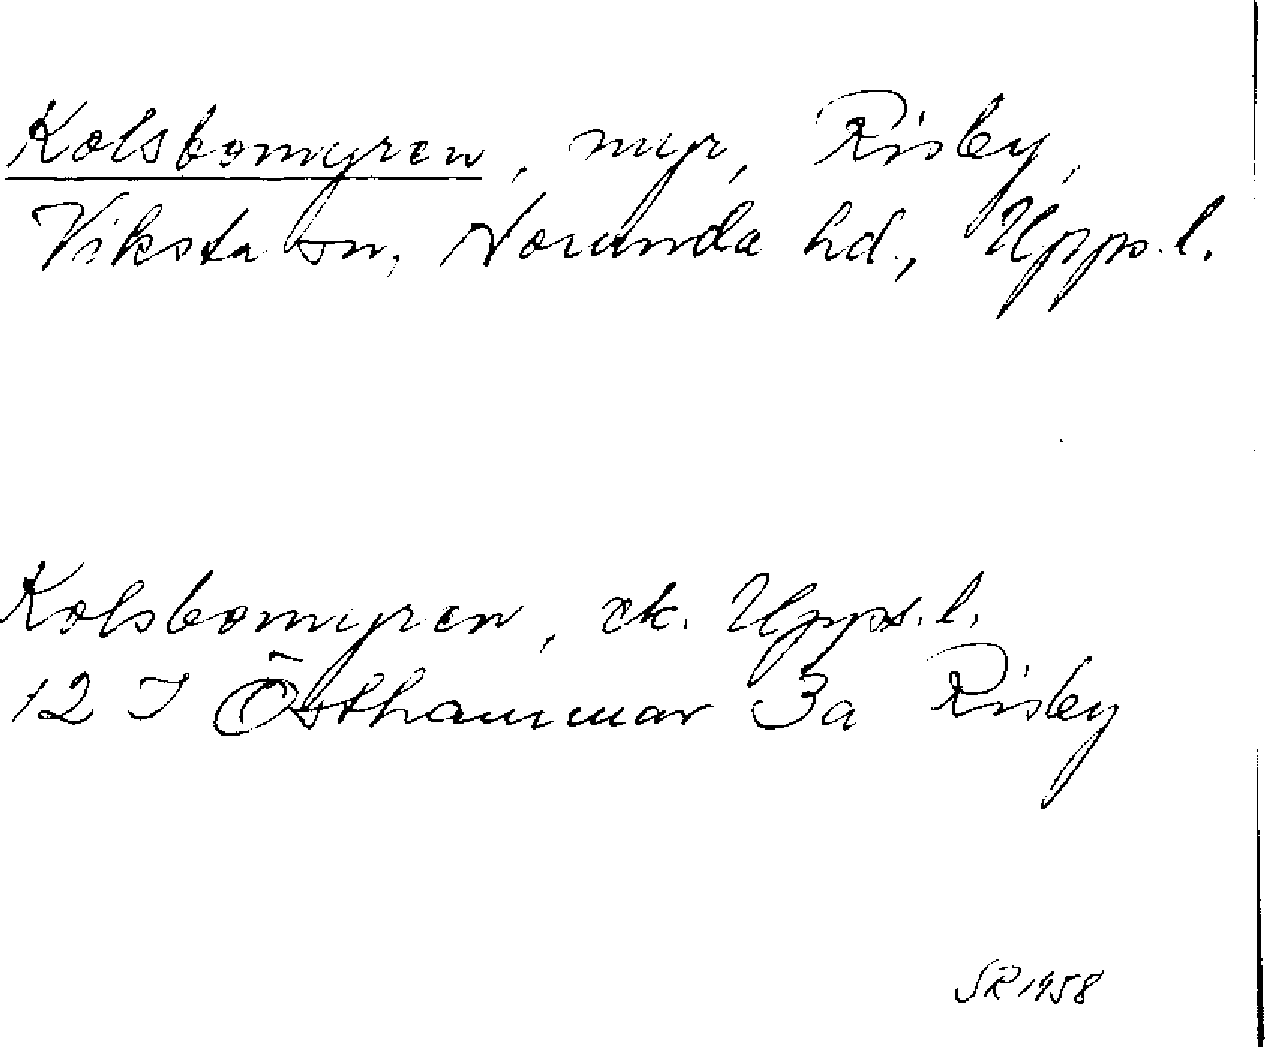 Kolsbomyren, myr, Risby,
Viksta sn, Norunda hd., Upps. l.
Kolsbomyren, ek. Upps. l.
12 I Östhammar 3a Risby
SR 1958